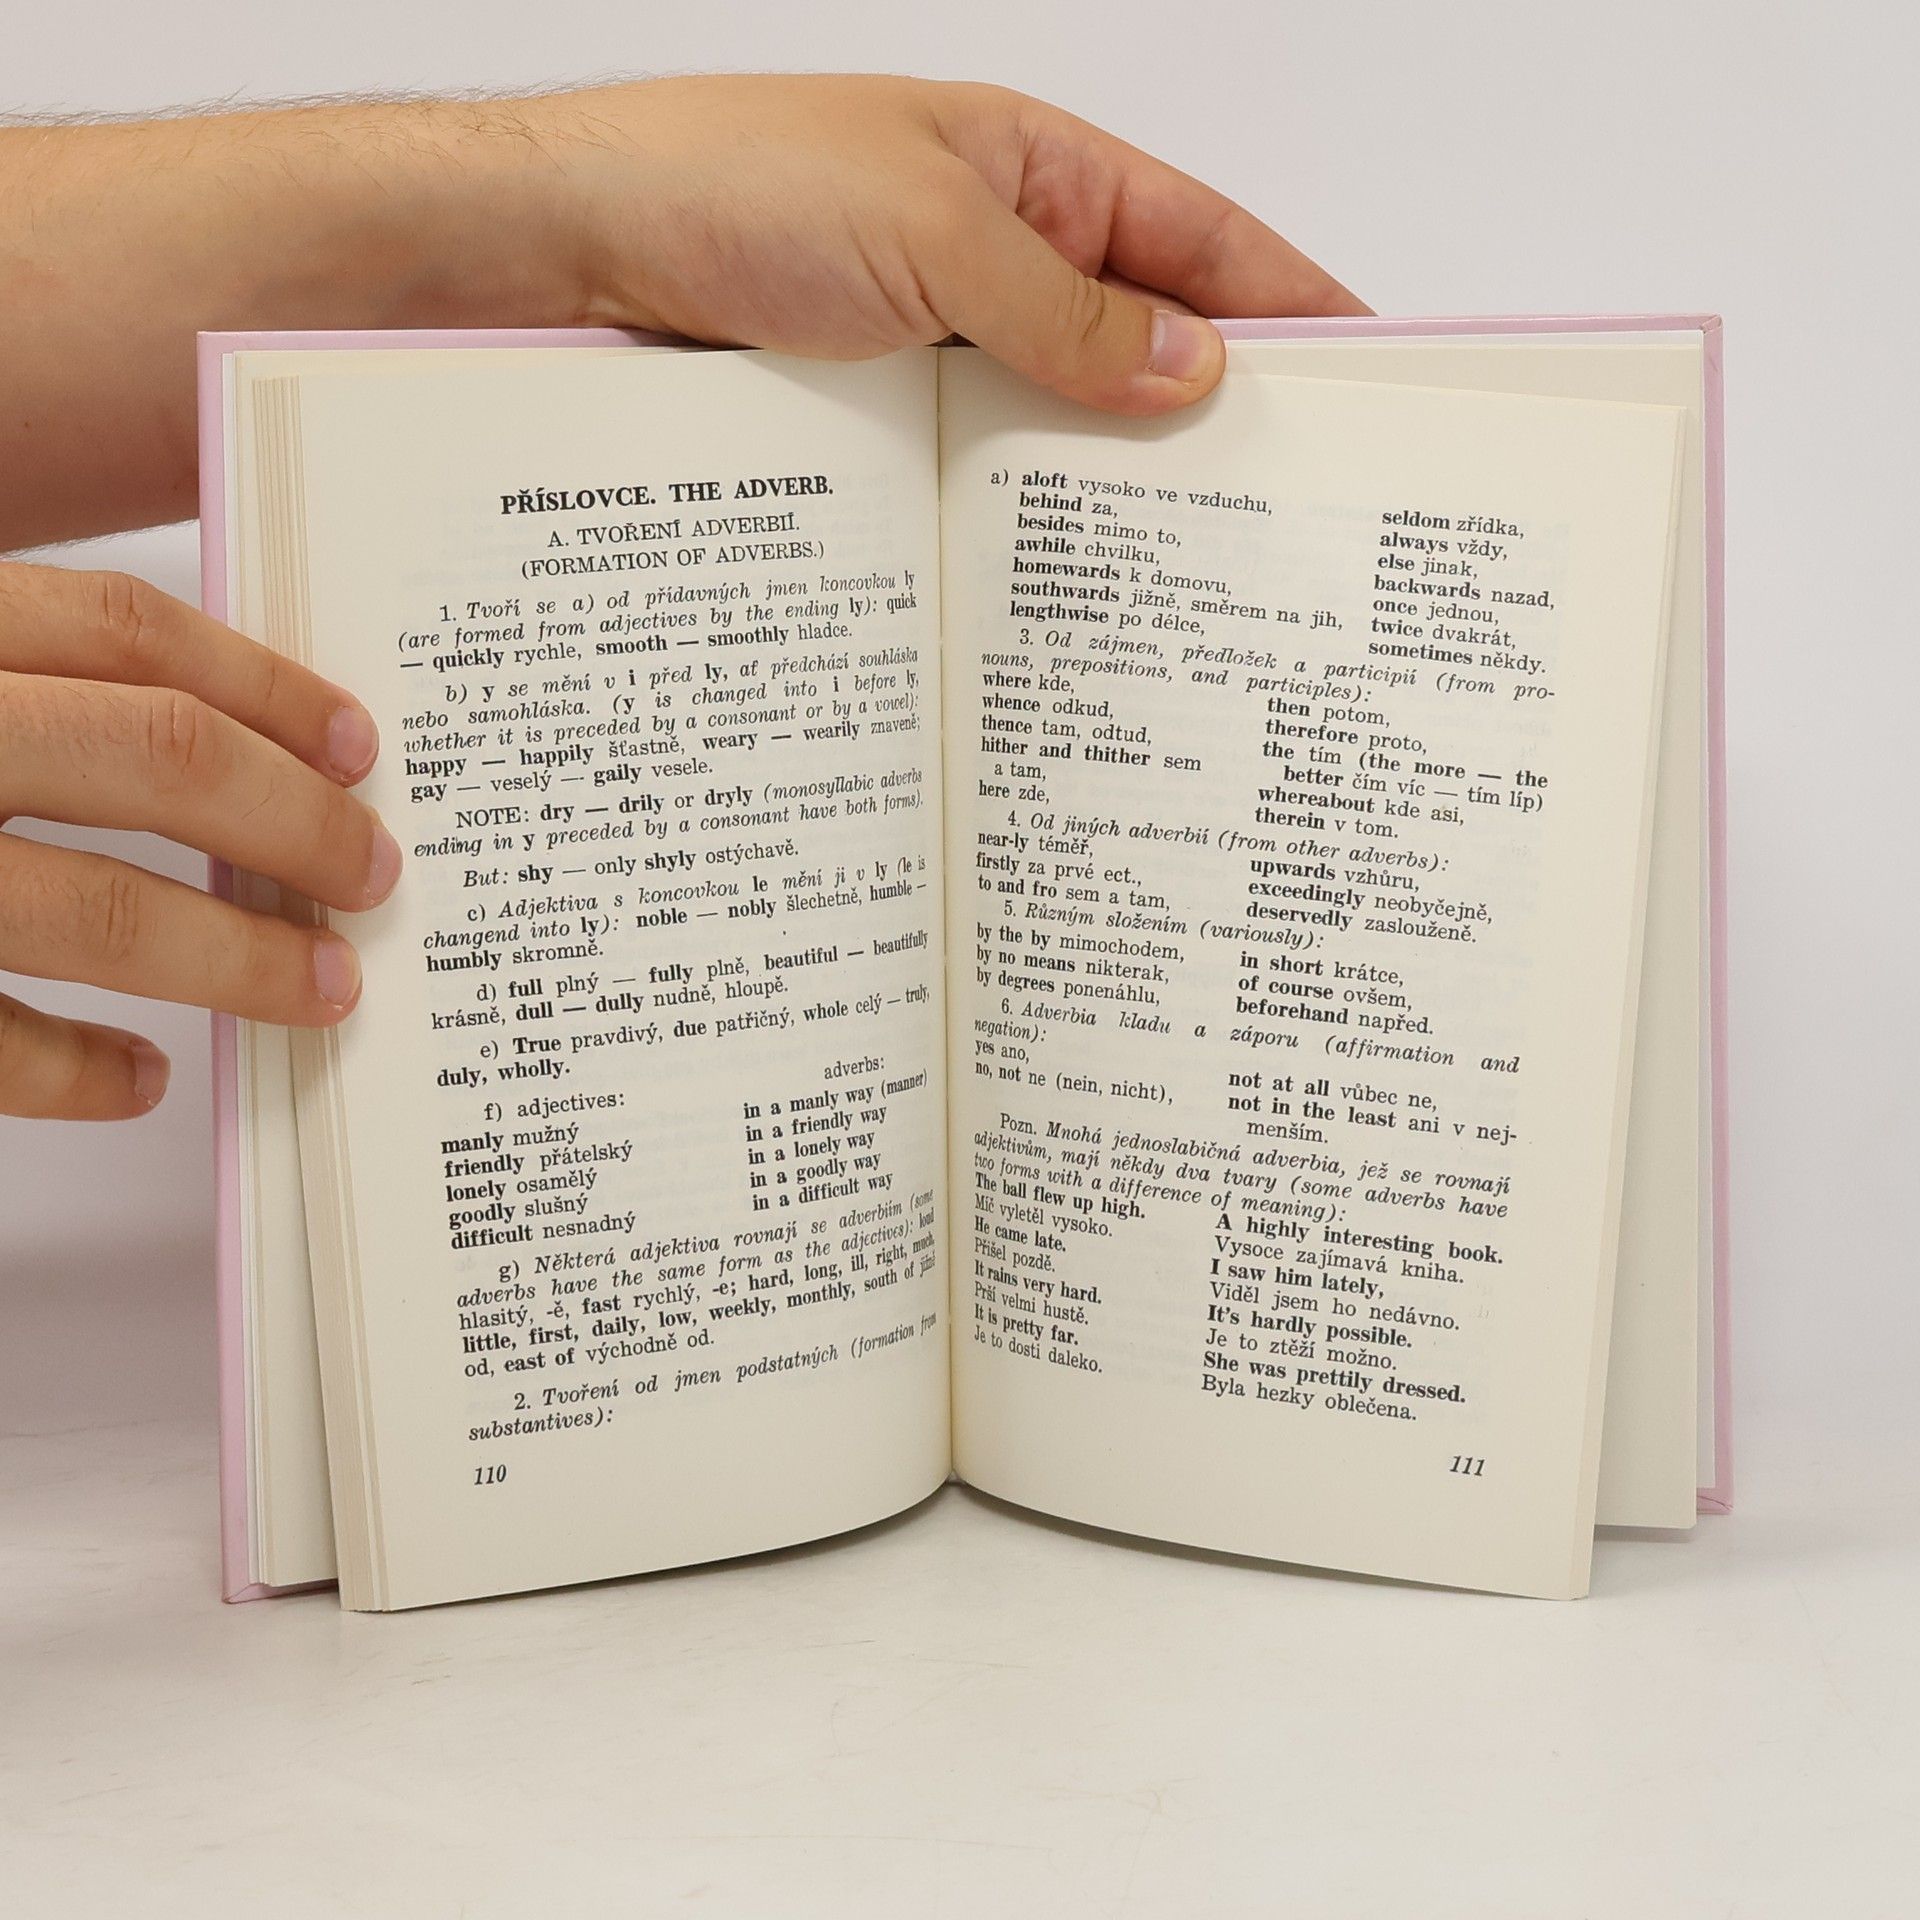 PŘÍSLOVCE. THE ADVERB.
A. TVOŘENÍ ADVERBIÍ.
(FORMATION OF ADVERBS.)
1. Tvoří se a) od přídavných jmen koncovkou ly
(are formed from adjectives by the ending ly): quick
— quickly rychle, smooth — smoothly hladce.
b) y se mění v i před ly, ať předchází souhláska
nebo samohláska. (y is changed into i before ly,
whether it is preceded by a consonant or by a vowel):
happy — happily šťastně, weary — wearily znaveně;
gay — veselý — gaily vesele.
NOTE: dry — drily or dryly (monosyllabic adverbs
ending in y preceded by a consonant have both forms).
But: shy — only shyly ostýchavě.
c) Adjektiva s koncovkou le mění ji v ly (le is
changend into ly): noble — nobly šlechetně, humble —
humbly skromně.
d) full plný — fully plně, beautiful — beautifully
krásně, dull — dully nudně, hloupě.
e) True pravdivý, due patřičný, whole celý — truly,
duly, wholly.
f) adjectives: adverbs:
manly mužný in a manly way (manner)
friendly přátelský in a friendly way
lonely osamělý in a lonely way
goodly slušný in a goodly way
difficult nesnadný in a difficult way
g) Některá adjektiva rovnají se adverbiím (some
adverbs have the same form as the adjectives): loud
hlasitý, -ě, fast rychlý, -e; hard, long, ill, right, much,
little, first, daily, low, weekly, monthly, south of jižně
od, east of východně od.
2. Tvoření od jmen podstatných (formation from
substantives):
110
a) aloft vysoko ve vzduchu,
behind za,
besides mimo to,
awhile chvilku,
homewards k domovu,
southwards jižně, směrem na jih,
lengthwise po délce,
seldom zřídka,
always vždy,
else jinak,
backwards nazad,
once jednou,
twice dvakrát,
sometimes někdy.
3. Od zájmen, předložek a participií (from pro-
nouns, prepositions, and participles):
where kde,
whence odkud,
thence tam, odtud,
hither and thither sem
a tam,
here zde,
then potom,
therefore proto,
the tím (the more — the
better čím víc — tím líp)
whereabout kde asi,
therein v tom.
4. Od jiných adverbií (from other adverbs):
near-ly téměř,
firstly za prvé ect.,
to and fro sem a tam,
upwards vzhůru,
exceedingly neobyčejně,
deservedly zaslouženě.
5. Různým složením (variously):
by the by mimochodem,
by no means nikterak,
by degrees ponenáhlu,
in short krátce,
of course ovšem,
beforehand napřed.
6. Adverbia kladu a záporu (affirmation and
negation):
yes ano,
no, not ne (nein, nicht),
not at all vůbec ne,
not in the least ani v nej-
menším.
Pozn. Mnohá jednoslabičná adverbia, jež se rovnají
adjektivům, mají někdy dva tvary (some adverbs have
two forms with a difference of meaning):
The ball flew up high.
Míč vyletěl vysoko.
He came late.
Přišel pozdě.
It rains very hard.
Prší velmi hustě.
It is pretty far.
Je to dosti daleko.
A highly interesting book.
Vysoce zajímavá kniha.
I saw him lately,
Viděl jsem ho nedávno.
It's hardly possible.
Je to ztěží možno.
She was prettily dressed.
Byla hezky oblečena.
111